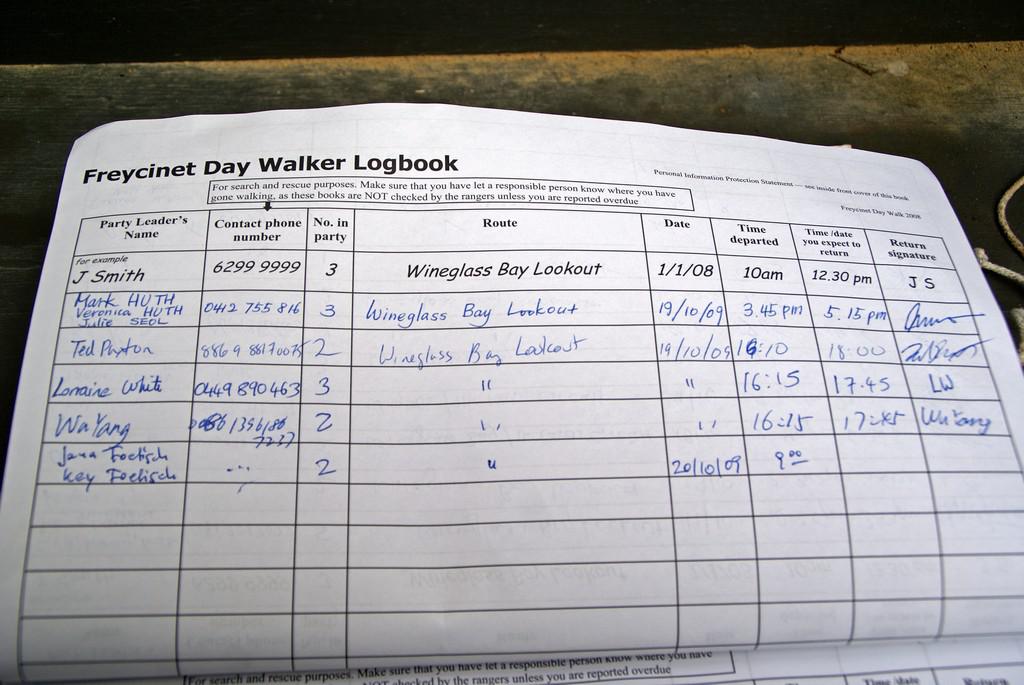 Freycinet Day Walker Logbook
Personal Information Protection Statement — see inside front cover of this book
For search and rescue purposes. Make sure that you have let a responsible person know where you have
gone walking, as these books are NOT checked by the rangers unless you are reported overdue
Freycinet Day Walk 2008
Party Leader's Name Contact phone number No. in party Route Date Time departed Time /date you expect to return Return signature
for example
J Smith 6299 9999 3 Wineglass Bay Lookout 1/1/08 10am 12.30 pm J S
Mark HUTH
Veronica HUTH 0412 755 816 3 Wineglass Bay Lookout 19/10/09 3.45 pm 5.15 pm
Julie SEOL
Ted 2 Wineglass Bay Lookout 19/10/09 16:10 18:00
Lorraine White 0449 890 463 3 " " 16:15 17.45 LW
Wu Yang 2 " " 16:15 17:45 Wu Yang
Jana Foetisch
Key Foetisch ... 2 " 20/10/09 9 00
For search and rescue purposes. Make sure that you have let a responsible person know where you have
NOT checked by the rangers unless you are reported overdue
Time /date
Return